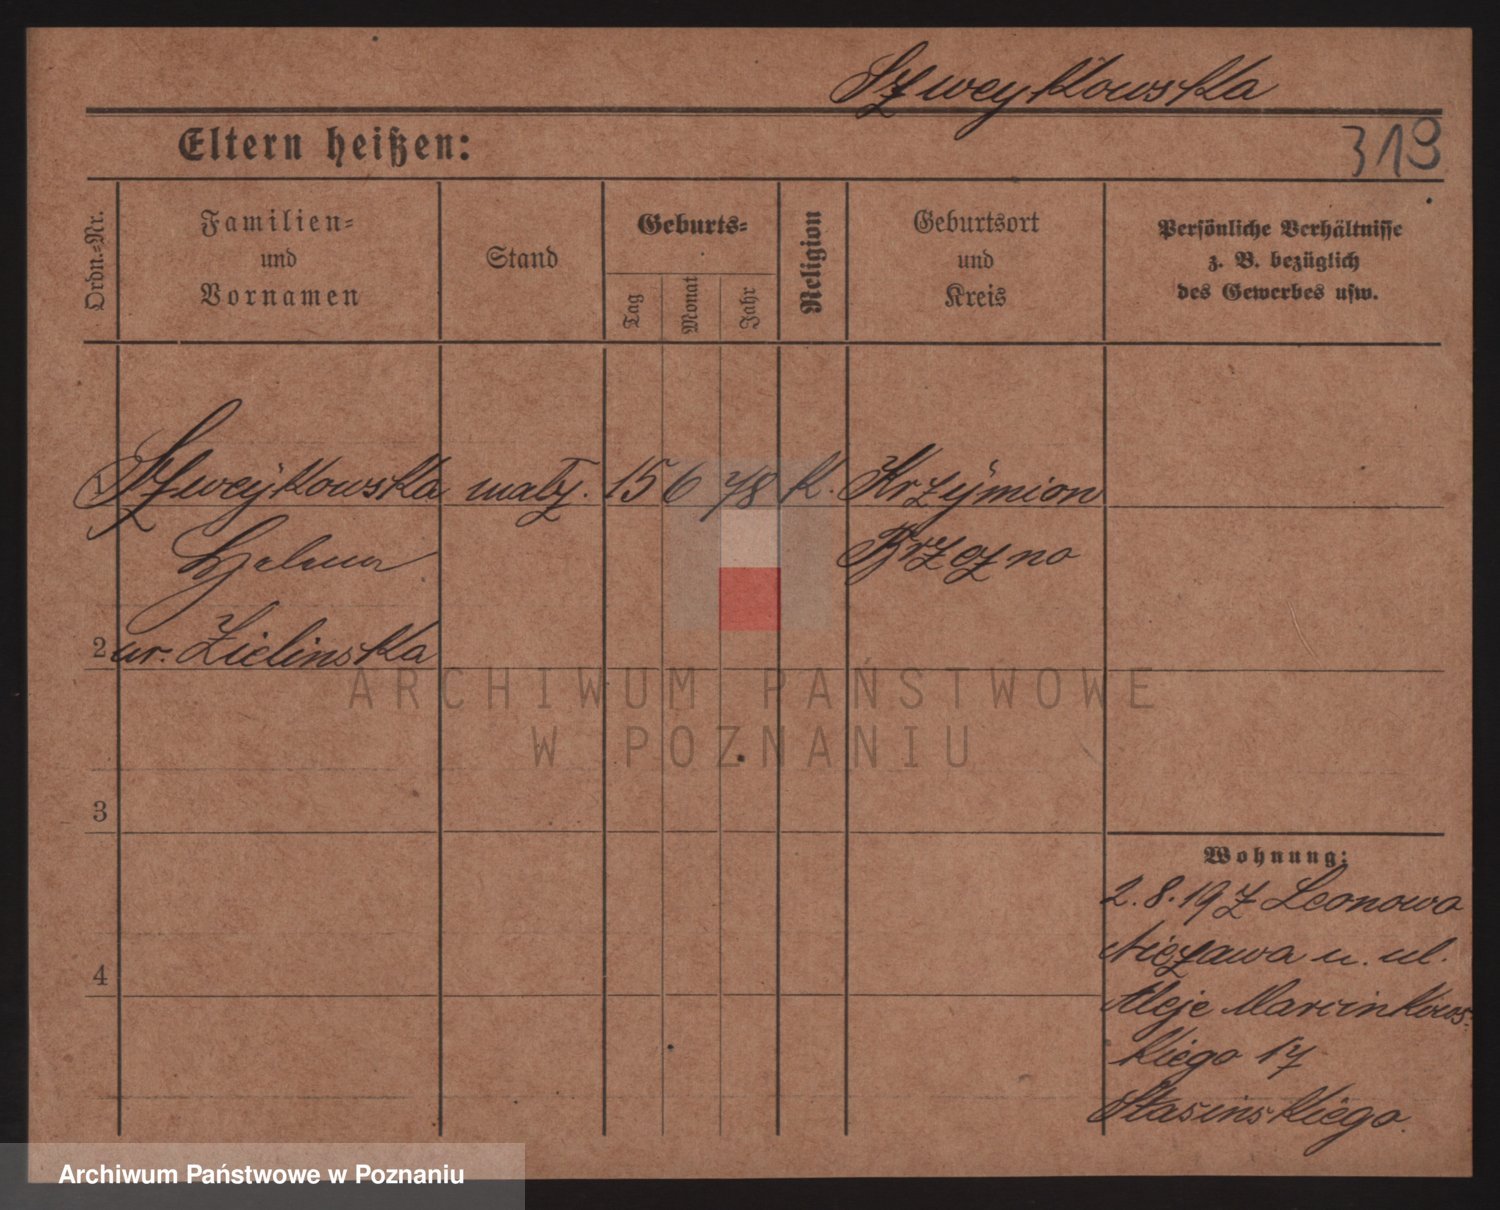 Szweykowska
Eltern heißen:
319
Ordn.-Nr.
Familien-
und
Vornamen
Stand
Geburts-
Tag
Monat
Jahr
Religion
Geburtsort
und
Kreis
Persönliche Verhältnisse
z. B. bezüglich
des Gewerbes usw.
1 Szweykowska małż. 15 6 78 k. Krzymion
Helena Brzezno
2 ur. Zielinska
3
4
Wohnung:
2.8.19 z Leonowo
Nieszawa u. ul.
Aleje Marcinkows-
kiego 17
Stasinskiego.
ARCHIWUM PAŃSTWOWE
W POZNANIU
Archiwum Państwowe w Poznaniu